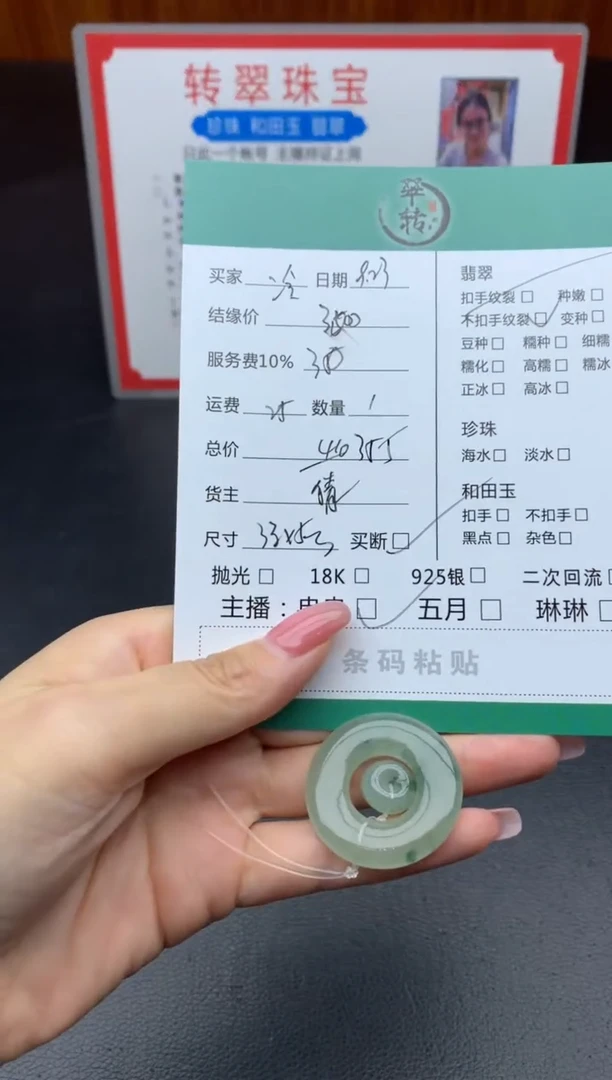 转翠珠宝
珍珠 和田玉 翡翠
翠转
买家 冷 日期 9.23
结缘价 3500
服务费10% 350
运费 数量 1
总价
货主 倩
尺寸 买断□
翡翠
扣手纹裂□ 种嫩□
不扣手纹裂□ 变种□
豆种□ 糯种□ 细糯
糯化□ 高糯□ 糯冰
正冰□ 高冰□
珍珠
海水□ 淡水□
和田玉
扣手□ 不扣手□
黑点□ 杂色□
抛光□ 18K□ 925银□ 二次回流□
主播： □ 五月□ 琳琳□
条码粘贴